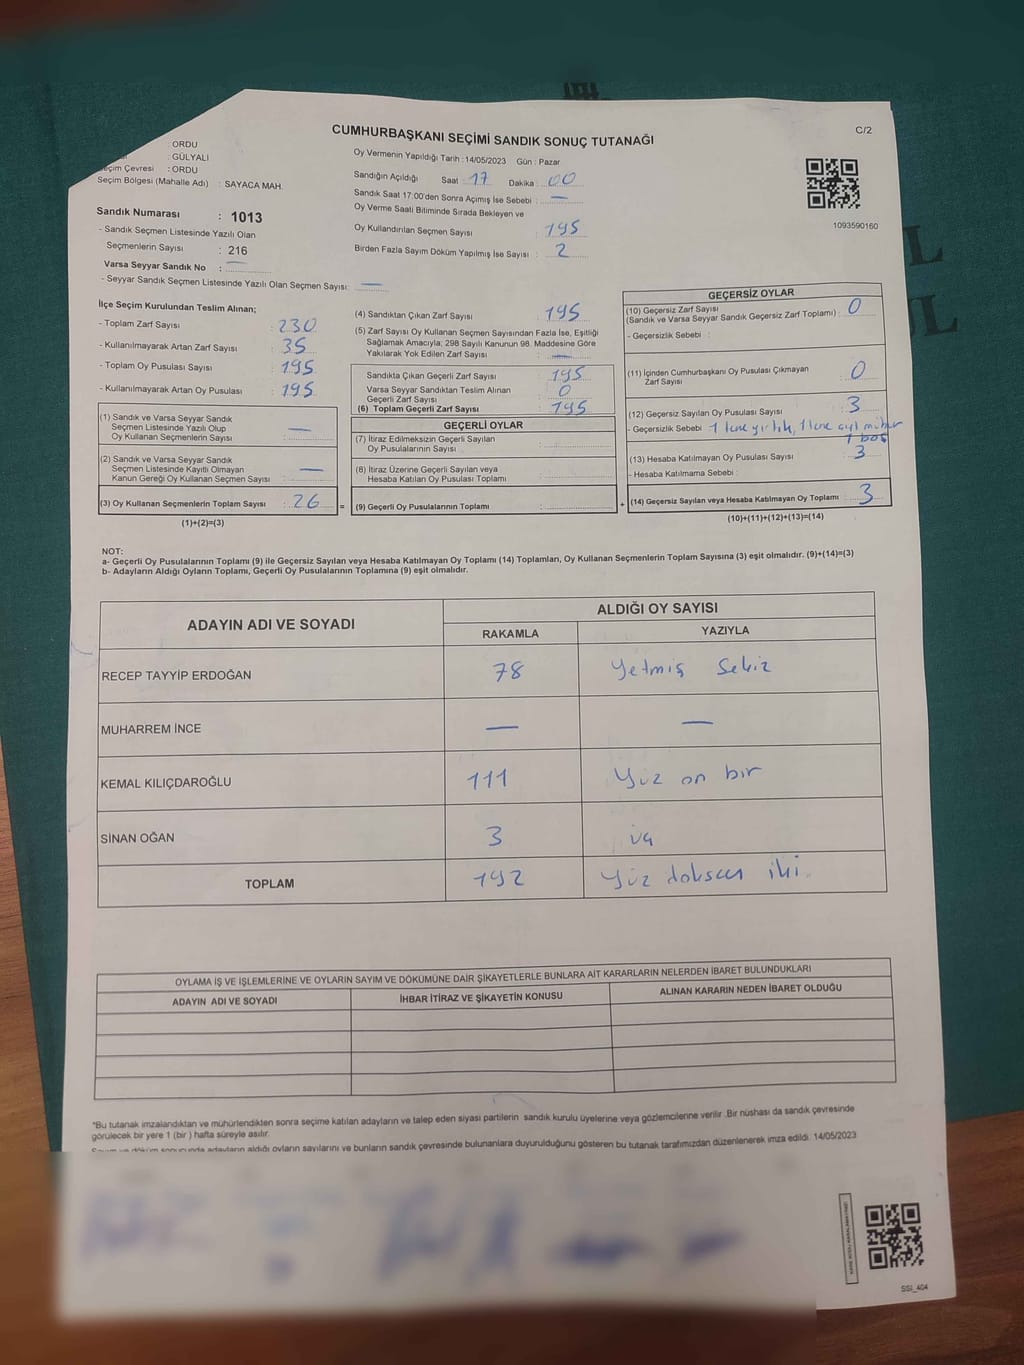 C/2
CUMHURBAŞKANI SEÇİMİ SANDIK SONUÇ TUTANAĞI
: ORDU
: GÜLYALI
Seçim Çevresi : ORDU
Seçim Bölgesi (Mahalle Adı) : SAYACA MAH.
Sandık Numarası : 1013
- Sandık Seçmen Listesinde Yazılı Olan
Seçmenlerin Sayısı : 216
Varsa Seyyar Sandık No : —
- Seyyar Sandık Seçmen Listesinde Yazılı Olan Seçmen Sayısı: —
Oy Vermenin Yapıldığı Tarih :14/05/2023 Gün : Pazar
Sandığın Açıldığı Saat : 17 Dakika : 00
Sandık Saat 17:00'den Sonra Açımış İse Sebebi : —
Oy Verme Saati Bitiminde Sırada Bekleyen ve
Oy Kullandırılan Seçmen Sayısı : 195
Birden Fazla Sayım Döküm Yapılmış İse Sayısı : 2
1093590160
İlçe Seçim Kurulundan Teslim Alınan;
- Toplam Zarf Sayısı : 230
- Kullanılmayarak Artan Zarf Sayısı : 35
- Toplam Oy Pusulası Sayısı : 195
- Kullanılmayarak Artan Oy Pusulası : 195
(1) Sandık ve Varsa Seyyar Sandık
Seçmen Listesinde Yazılı Olup
Oy Kullanan Seçmenlerin Sayısı : —
(2) Sandık ve Varsa Seyyar Sandık
Seçmen Listesinde Kayıtlı Olmayan
Kanun Gereği Oy Kullanan Seçmen Sayısı : —
(3) Oy Kullanan Seçmenlerin Toplam Sayısı : 26 =
(1)+(2)=(3)
(4) Sandıktan Çıkan Zarf Sayısı : 195
(5) Zarf Sayısı Oy Kullanan Seçmen Sayısından Fazla İse, Eşitliği
Sağlamak Amacıyla; 298 Sayılı Kanunun 98. Maddesine Göre
Yakılarak Yok Edilen Zarf Sayısı : —
Sandıkta Çıkan Geçerli Zarf Sayısı : 195
Varsa Seyyar Sandıktan Teslim Alınan
Geçerli Zarf Sayısı : 0
(6) Toplam Geçerli Zarf Sayısı : 195
GEÇERLİ OYLAR
(7) İtiraz Edilmeksizin Geçerli Sayılan
Oy Pusulalarının Sayısı :
(8) İtiraz Üzerine Geçerli Sayılan veya
Hesaba Katılan Oy Pusulası Toplamı :
(9) Geçerli Oy Pusulalarının Toplamı : +
GEÇERSİZ OYLAR
(10) Geçersiz Zarf Sayısı
(Sandık ve Varsa Seyyar Sandık Geçersiz Zarf Toplamı) : 0
- Geçersizlik Sebebi :
(11) İçinden Cumhurbaşkanı Oy Pusulası Çıkmayan
Zarf Sayısı : 0
(12) Geçersiz Sayılan Oy Pusulası Sayısı : 3
- Geçersizlik Sebebi : 1 tane yırtık, 1 tane ayrı mühür
1 boş
(13) Hesaba Katılmayan Oy Pusulası Sayısı : 3
- Hesaba Katılmama Sebebi :
(14) Geçersiz Sayılan veya Hesaba Katılmayan Oy Toplamı : 3
(10)+(11)+(12)+(13)=(14)
NOT:
a- Geçerli Oy Pusulalarının Toplamı (9) ile Geçersiz Sayılan veya Hesaba Katılmayan Oy Toplamı (14) Toplamları, Oy Kullanan Seçmenlerin Toplam Sayısına (3) eşit olmalıdır. (9)+(14)=(3)
b- Adayların Aldığı Oyların Toplamı, Geçerli Oy Pusulalarının Toplamına (9) eşit olmalıdır.
ADAYIN ADI VE SOYADI ALDIĞI OY SAYISI
RAKAMLA YAZIYLA
RECEP TAYYİP ERDOĞAN 78 Yetmiş Sekiz
MUHARREM İNCE — —
KEMAL KILIÇDAROĞLU 111 Yüz on bir
SİNAN OĞAN 3 üç
TOPLAM 192 Yüz doksan iki
OYLAMA İŞ VE İŞLEMLERİNE VE OYLARIN SAYIM VE DÖKÜMÜNE DAİR ŞİKAYETLERLE BUNLARA AİT KARARLARIN NELERDEN İBARET BULUNDUKLARI
ADAYIN ADI VE SOYADI İHBAR İTİRAZ VE ŞİKAYETİN KONUSU ALINAN KARARIN NEDEN İBARET OLDUĞU
*Bu tutanak imzalandıktan ve mühürlendikten sonra seçime katılan adayların ve talep eden siyasi partilerin sandık kurulu üyelerine veya gözlemcilerine verilir .Bir nüshası da sandık çevresinde
görülecek bir yere 1 (bir ) hafta süreyle asılır.
Sayım ve döküm sonucunda adayların aldığı oyların sayılarını ve bunların sandık çevresinde bulunanlara duyurulduğunu gösteren bu tutanak tarafımızdan düzenlenerek imza edildi. 14/05/2023
SSI_404